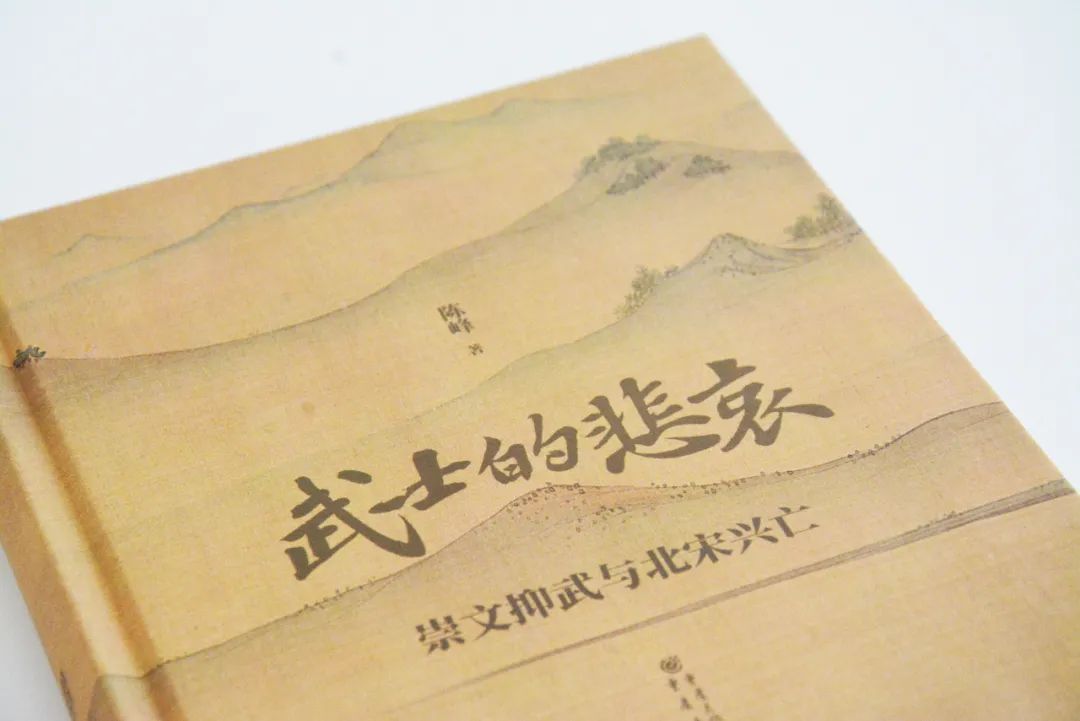 陈峰 著
武士的悲哀
崇文抑武与北宋兴亡